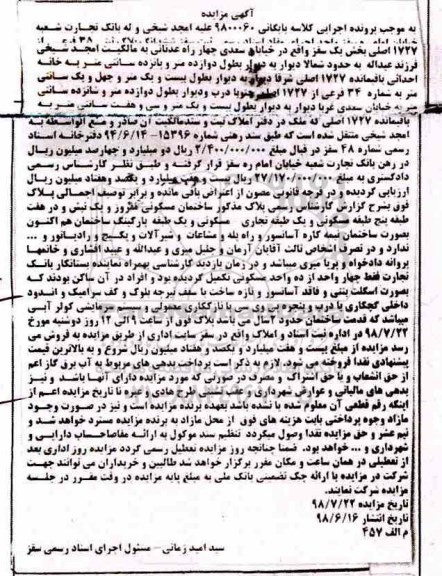 آگهی مزایده
به موجب پرونده اجرایی کلاسه بایگانی ۹۸۰۰۰۶۰ علیه امجد شیخی و له بانک تجارت شعبه
۱۷۲۷ اصلی بخش یک سقز واقع در خیابان سعدی چهار راه عدنانی به مالکیت امجد شیخی
فرزند عبداله به حدود شمالا دیوار به دیوار بطول دوازده متر و پانزده سانتی متر به خانه
احداثی باقیمانده ۱۷۲۷ اصلی شرقا دیوار به دیوار بطول بیست و یک متر و چهل و یک سانتی
متر به شماره ۳۴ فرعی از ۱۷۲۷ اصلی جنوبا درب ودیوار بطول دوازده متر و شانزده سانتی
متر به خیابان سعدی غربا دیوار به دیوار بطول بیست و یک متر و سی و هفت سانتی متر به
باقیمانده ۱۷۲۷ اصلی که ملک در دفتر املاک ثبت و سندمالکیت آن صادر و مع الواسطه به
امجد شیخی منتقل شده است که طبق سند رهنی شماره ۱۵۳۹۶– ۹۴/۶/۱۴ دفترخانه اسناد
رسمی شماره ۴۸ سقز در قبال مبلغ ۲/۴۰۰/۰۰۰/۰۰۰ ریال دو میلیارد و چهارصد میلیون ریال
در رهن بانک تجارت شعبه خیابان امام ره سقز قرار گرفته و طبق نظر کارشناس رسمی
دادگستری به مبلغ ۲۷/۱۷۰/۰۰۰/۰۰۰ ریال بیست و هفت میلیارد و یکصد وهفتاد میلیون ریال
ارزیابی گردیده و در فرجه قانونی مصون از اعتراض باقی مانده و برابر توصیف اجمالی پلاک
فوق بشرح گزارش کارشناس رسمی پلاک مذکور ساختمان مسکونی فلزوز و یک نبش و در هفت
طبقه پنج طبقه مسکونی و یک طبقه تجاری مسکونی و یک طبقه پارکینگ ساختمان هم اکنون
بصورت ساختمان نیمه کاره آسانسور و راه پله و مشاعات و شیرآلات و پکیج و رادیاتور و ...
ندارد و در تصرف اشخاص ثالث آقایان آرمان و جلیل میری و عبداله و عبید افشاری و خانمها
پروانه دادخواه و پریا میری میباشد و در زمان بازدید کارشناسی بهمراه نماینده بستانکار بانک
تجارت فقط چهار واحد از ده واحد مسکونی تکمیل گردیده بود و افراد در آن ساکن بودند که
بصورت اسکلت بتنی و فاقد آسانسور و تازه ساخت با سقف تیرچه بلوک و کف سرامیک و اندود
داخلی گچکاری با درب و پنجره یو پی وی سی با نازکاری معمولی و سیستم سرمایشی کولر آبی
میباشد که قدمت ساختمان حدود ۲سال می باشد پلاک فوق از ساعت ۹ الی ۱۲ روز دوشنبه مورخ
۹۸/۷/۲۲ در اداره ثبت اسناد و املاک واقع در سقز سایت اداری از طریق مزایده به فروش می
رسد مزایده از مبلغ بیست و هفت میلیارد و یکصد و هفتاد میلیون ریال شروع و به بالاترین قیمت
پیشنهادی نقدا فروخته می شود. لازم به ذکر است پرداخت بدهی های مربوط به آب برق گاز اعم
از حق انشعاب و یا حق اشتراک و مصرف در صورتی که مورد مزایده دارای آنها باشد و نیز
بدهی های مالیاتی و عوارض شهرداری و عدم تسنی طرح هادی و غیره تا تاریخ مزایده اعم از
اینکه رقم قطعی آن معلوم شده یا نشده باشد بعهده برنده مزایده است و نیز در صورت وجود
مازاد وجوه پرداختی بابت هزینه های فوق از محل مازاد به برنده مزایده مسترد خواهد شد و
نیم عشر و حق مزایده نقدا وصول میگردد تنظیم سند موکول به ارائه مفاصاحساب دارایی و
شهرداری و ... خواهد بود. ضمنا چنانچه روز مزایده تعطیل رسمی گردد مزایده روز اداری بعد
از تعطیلی در همان ساعت و مکان مقرر برگزار خواهد شد طالبین و خریداران می توانند جهت
شرکت در مزایده با ارائه چک تضمینی بانک ملی به مبلغ پایه مزایده در وقت مقرر در جلسه
مزایده شرکت نمایند.
تاریخ مزایده ۹۸/۷/۲۲
تاریخ انتشار ۹۸/۶/۱۶
م الف ۴۵۷
سید امید زمانی – مسئول اجرای اسناد رسمی سقز